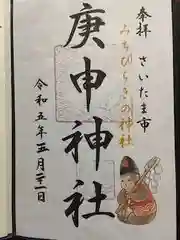 奉拝 さいたま市
みちびらきの神社
庚申神社
令和五年五月二十一日